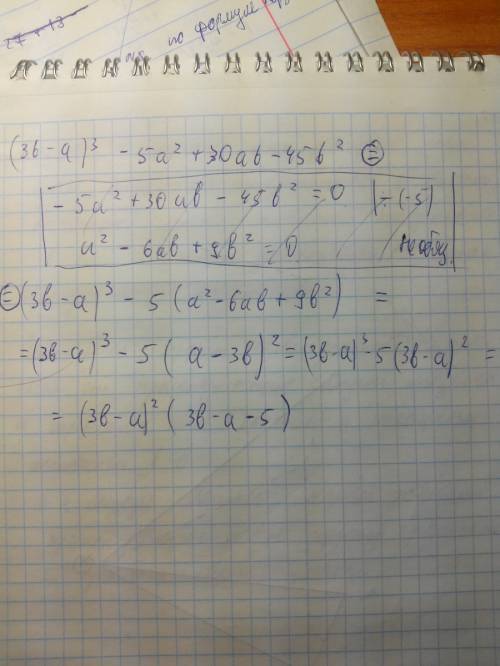 27 + 13
по формуле
(3b - a)³ - 5a² + 30ab - 45b² =
- 5a² + 30ab - 45b² = 0 | ÷ (-5)
a² - 6ab + 9b² = 0
= (3b - a)³ - 5 (a² - 6ab + 9b²) =
= (3b - a)³ - 5 (a - 3b)² = (3b - a)³ - 5 (3b - a)² =
= (3b - a)² (3b - a - 5)